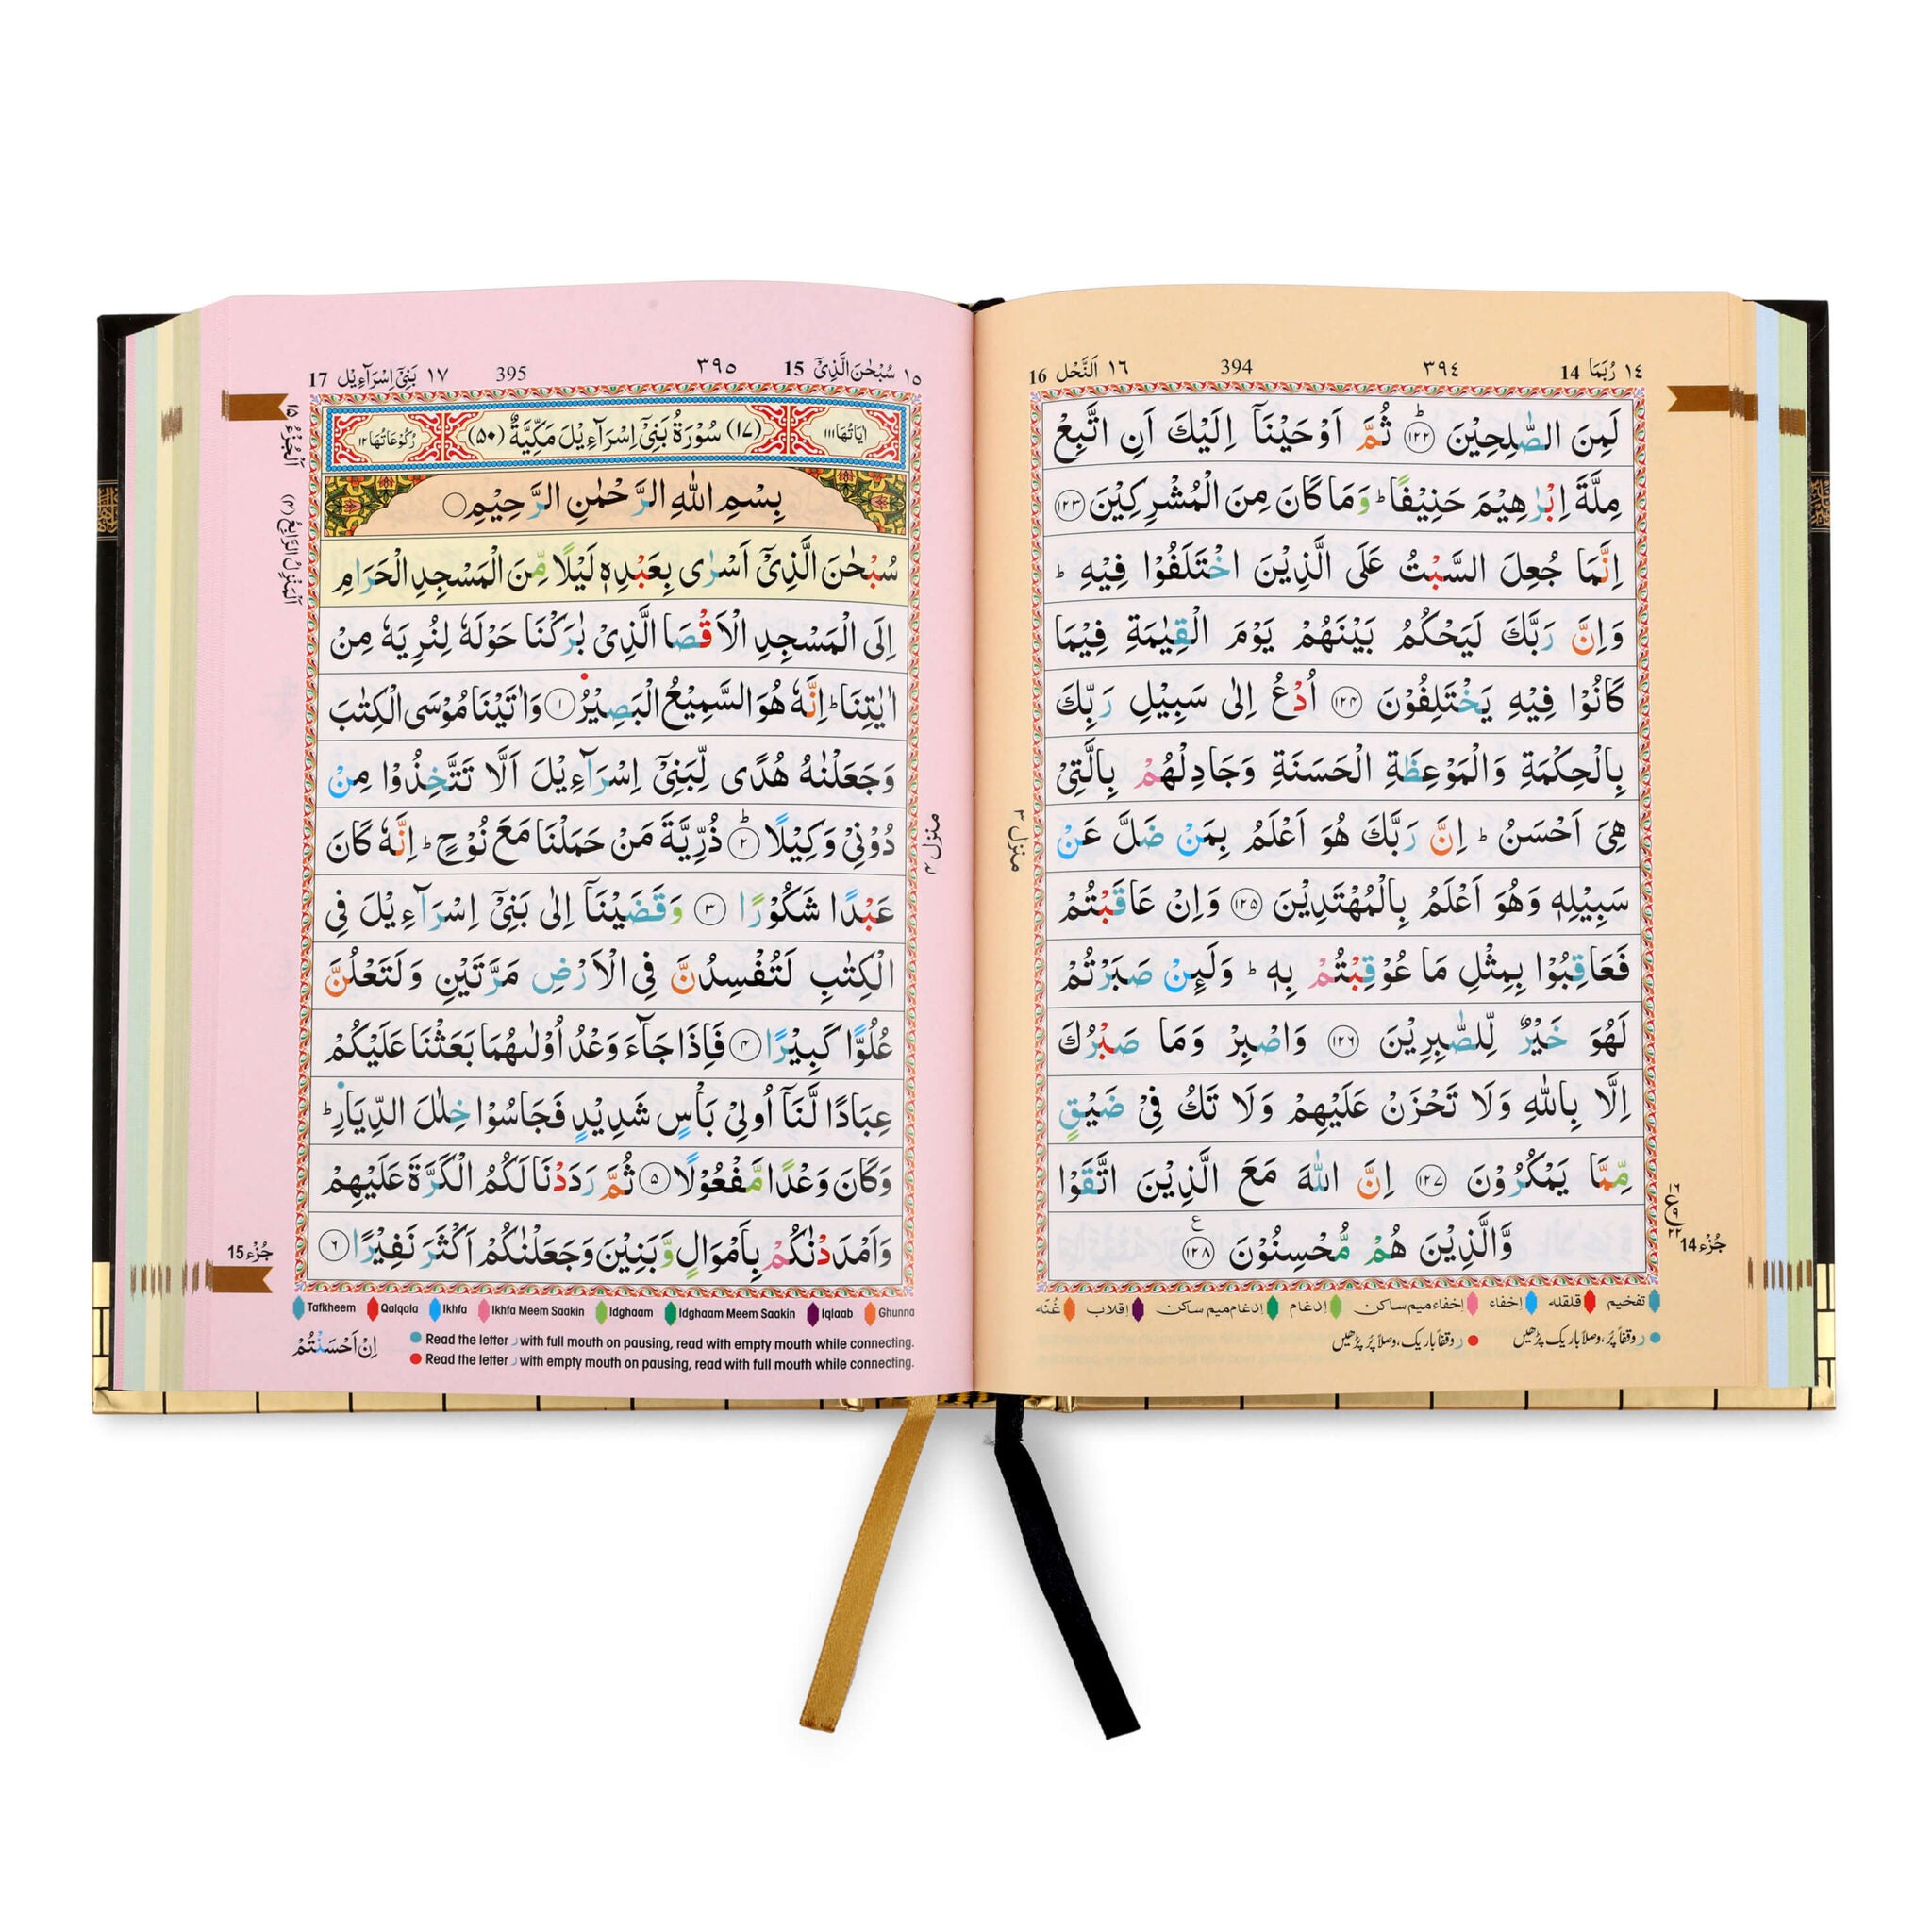 ١٤ رُبَمَا 14 ٣٩٤ 394 ١٦ اَلنَّحْل 16
لَمِنَ الصّٰلِحِيْنَ ۝١٢٢ؕ ثُمَّ اَوْحَيْنَاۤ اِلَيْكَ اَنِ اتَّبِعْ
مِلَّةَ اِبْرٰهِيْمَ حَنِيْفًا ؕ وَمَا كَانَ مِنَ الْمُشْرِكِيْنَ ۝١٢٣
اِنَّمَا جُعِلَ السَّبْتُ عَلَى الَّذِيْنَ اخْتَلَفُوْا فِيْهِ ؕ
وَاِنَّ رَبَّكَ لَيَحْكُمُ بَيْنَهُمْ يَوْمَ الْقِيٰمَةِ فِيْمَا
كَانُوْا فِيْهِ يَخْتَلِفُوْنَ ۝١٢٤ اُدْعُ اِلٰى سَبِيْلِ رَبِّكَ
بِالْحِكْمَةِ وَالْمَوْعِظَةِ الْحَسَنَةِ وَجَادِلْهُمْ بِالَّتِيْ
هِيَ اَحْسَنُ ؕ اِنَّ رَبَّكَ هُوَ اَعْلَمُ بِمَنْ ضَلَّ عَنْ
سَبِيْلِهٖ وَهُوَ اَعْلَمُ بِالْمُهْتَدِيْنَ ۝١٢٥ وَاِنْ عَاقَبْتُمْ
فَعَاقِبُوْا بِمِثْلِ مَا عُوْقِبْتُمْ بِهٖ ؕ وَلَئِنْ صَبَرْتُمْ
لَهُوَ خَيْرٌ لِّلصّٰبِرِيْنَ ۝١٢٦ وَاصْبِرْ وَمَا صَبْرُكَ
اِلَّا بِاللّٰهِ وَلَا تَحْزَنْ عَلَيْهِمْ وَلَا تَكُ فِيْ ضَيْقٍ
مِّمَّا يَمْكُرُوْنَ ۝١٢٧ اِنَّ اللّٰهَ مَعَ الَّذِيْنَ اتَّقَوْا
وَّالَّذِيْنَ هُمْ مُّحْسِنُوْنَ ۝١٢٨ ع
منزل ٣
جُزْء 14
تفخيم قلقله إخفاء إخفاء ميم ساكن إدغام إدغام ميم ساكن إقلاب غُنّه
ر وقفاً پُر، وصلاً باریک پڑھیں ر وقفاً باریک، وصلاً پُر پڑھیں
١٥ سُبْحٰنَ الَّذِيْۤ 15 ٣٩٥ 395 ١٧ بَنِيْۤ اِسْرَآءِيْل 17
اٰيَاتُهَا ١١١ (١٧) سُوْرَةُ بَنِيْۤ اِسْرَآءِيْلَ مَكِّيَّةٌ (٥٠) رُكُوْعَاتُهَا ١٢
بِسْمِ اللّٰهِ الرَّحْمٰنِ الرَّحِيْمِ
سُبْحٰنَ الَّذِيْۤ اَسْرٰى بِعَبْدِهٖ لَيْلًا مِّنَ الْمَسْجِدِ الْحَرَامِ
اِلَى الْمَسْجِدِ الْاَقْصَا الَّذِيْ بٰرَكْنَا حَوْلَهٗ لِنُرِيَهٗ مِنْ
اٰيٰتِنَا ؕ اِنَّهٗ هُوَ السَّمِيْعُ الْبَصِيْرُ ۝١ وَاٰتَيْنَا مُوْسَى الْكِتٰبَ
وَجَعَلْنٰهُ هُدًى لِّبَنِيْۤ اِسْرَآءِيْلَ اَلَّا تَتَّخِذُوْا مِنْ
دُوْنِيْ وَكِيْلًا ۝٢ؕ ذُرِّيَّةَ مَنْ حَمَلْنَا مَعَ نُوْحٍ ؕ اِنَّهٗ كَانَ
عَبْدًا شَكُوْرًا ۝٣ وَقَضَيْنَاۤ اِلٰى بَنِيْۤ اِسْرَآءِيْلَ فِي
الْكِتٰبِ لَتُفْسِدُنَّ فِي الْاَرْضِ مَرَّتَيْنِ وَلَتَعْلُنَّ
عُلُوًّا كَبِيْرًا ۝٤ فَاِذَا جَآءَ وَعْدُ اُوْلٰىهُمَا بَعَثْنَا عَلَيْكُمْ
عِبَادًا لَّنَاۤ اُولِيْ بَاْسٍ شَدِيْدٍ فَجَاسُوْا خِلٰلَ الدِّيَارِ ؕ
وَكَانَ وَعْدًا مَّفْعُوْلًا ۝٥ ثُمَّ رَدَدْنَا لَكُمُ الْكَرَّةَ عَلَيْهِمْ
وَاَمْدَدْنٰكُمْ بِاَمْوَالٍ وَّبَنِيْنَ وَجَعَلْنٰكُمْ اَكْثَرَ نَفِيْرًا ۝٦
منزل ٤
اَلْجُزْءُ ١٥
اَلْمَنْزِلُ الرَّابِعُ (٤)
جُزْء 15
Tafkheem Qalqala Ikhfa Ikhfa Meem Saakin Idghaam Idghaam Meem Saakin Iqlaab Ghunna
Read the letter ر with full mouth on pausing, read with empty mouth while connecting.
Read the letter ر with empty mouth on pausing, read with full mouth while connecting.
اِنْ اَحْسَنْتُمْ